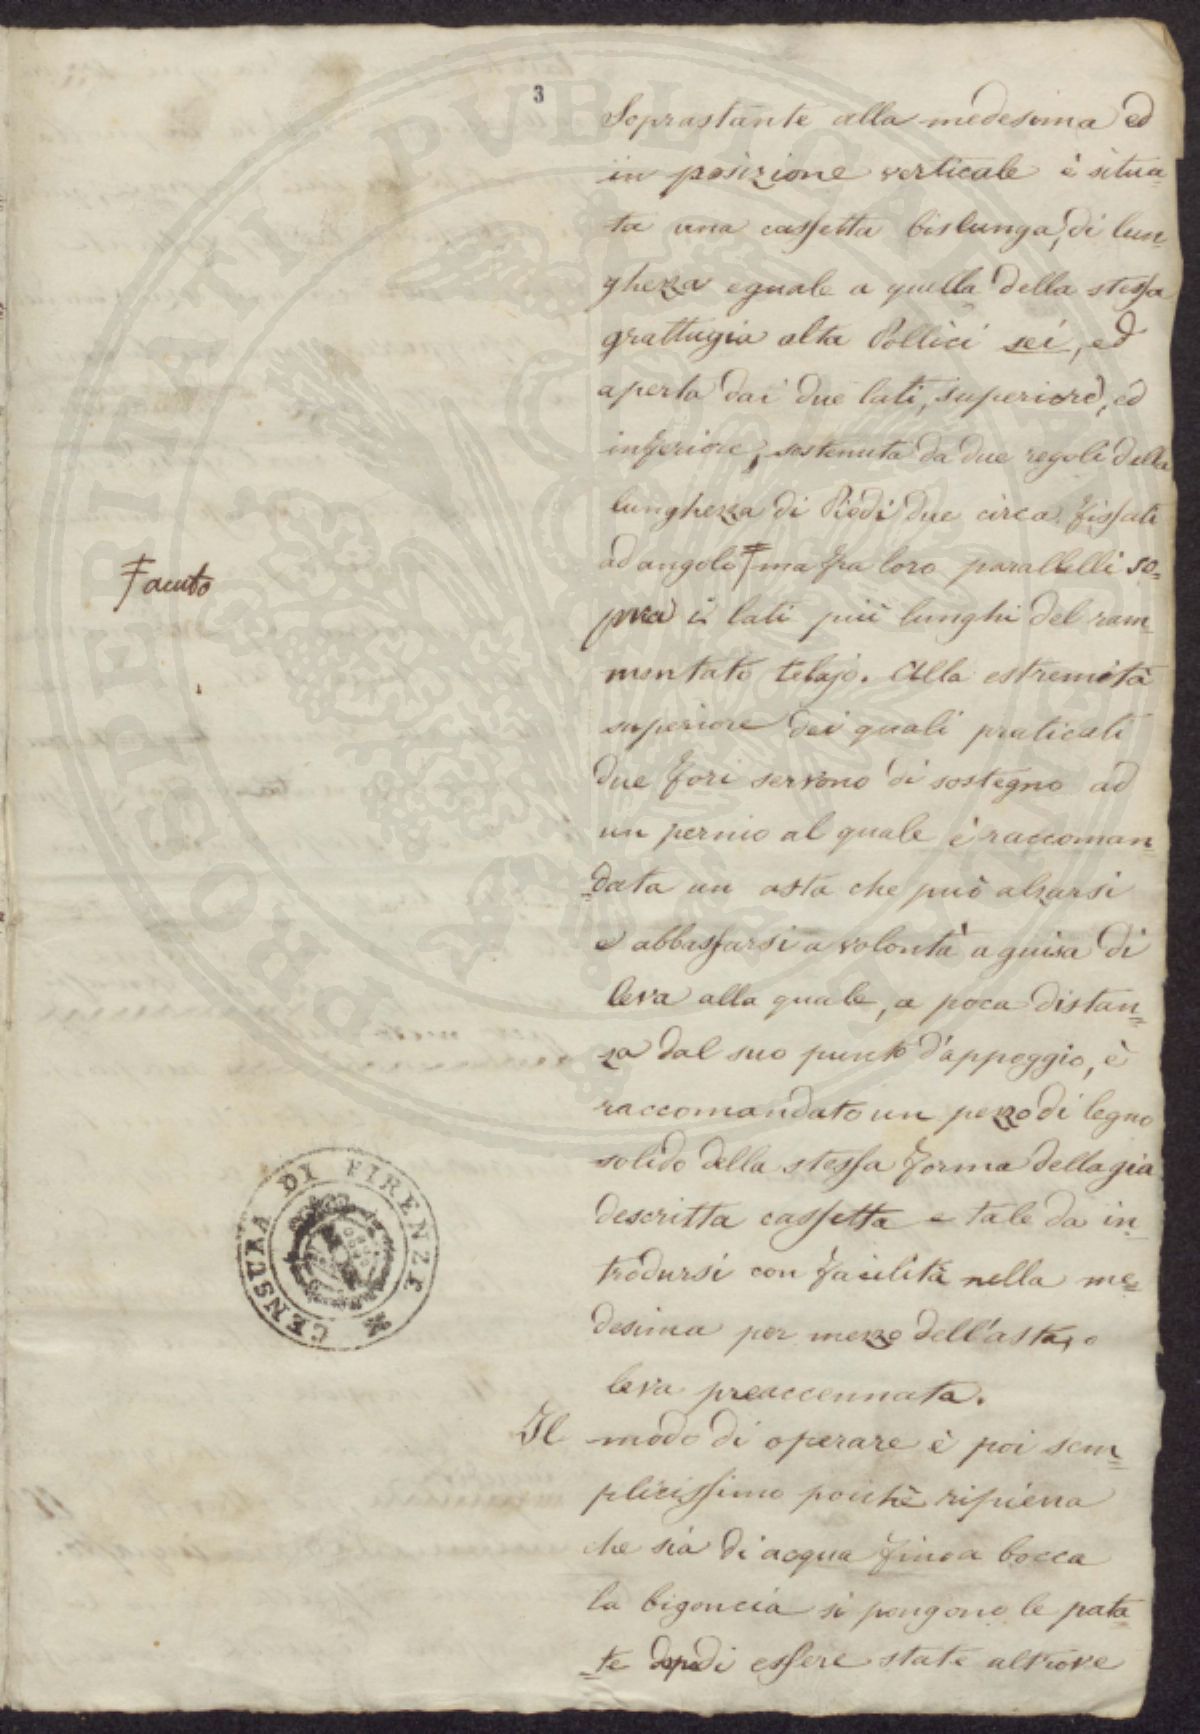 3
Soprastante alla medesima ed
in posizione verticale è situa-
ta una cassetta bislunga, di lun-
ghezza eguale a quella della stessa
grattugia alta Pollici sei, ed
aperta dai due lati, superiore, ed
inferiore, sostenuta da due regoli della
lunghezza di Piedi due circa fissati
ad angolo ‡ ma fra loro parallelli so-
‡ acuto
pra i lati più lunghi del ram-
mentato telajo. Alla estremità
superiore dei quali praticati
due fori servono di sostegno ad
un pernio al quale è raccoman-
data un asta che può alzarsi
e abbassarsi a volontà a guisa di
leva alla quale, a poca distan-
za dal suo punto d'appoggio, è
raccomandato un pezzo di legno
solido della stessa forma della già
descritta cassetta e tale da in-
trodursi con facilità nella me-
desima per mezzo dell'asta, o
leva preaccennata.
Il modo di operare è poi sem-
plicissimo poichè ripiena
che sia di acqua fino a bocca
la bigoncia si pongono le pata-
te dopo di essere state altrove
CENSURA DI FIRENZE
PROSPERITATI PVBLICAE